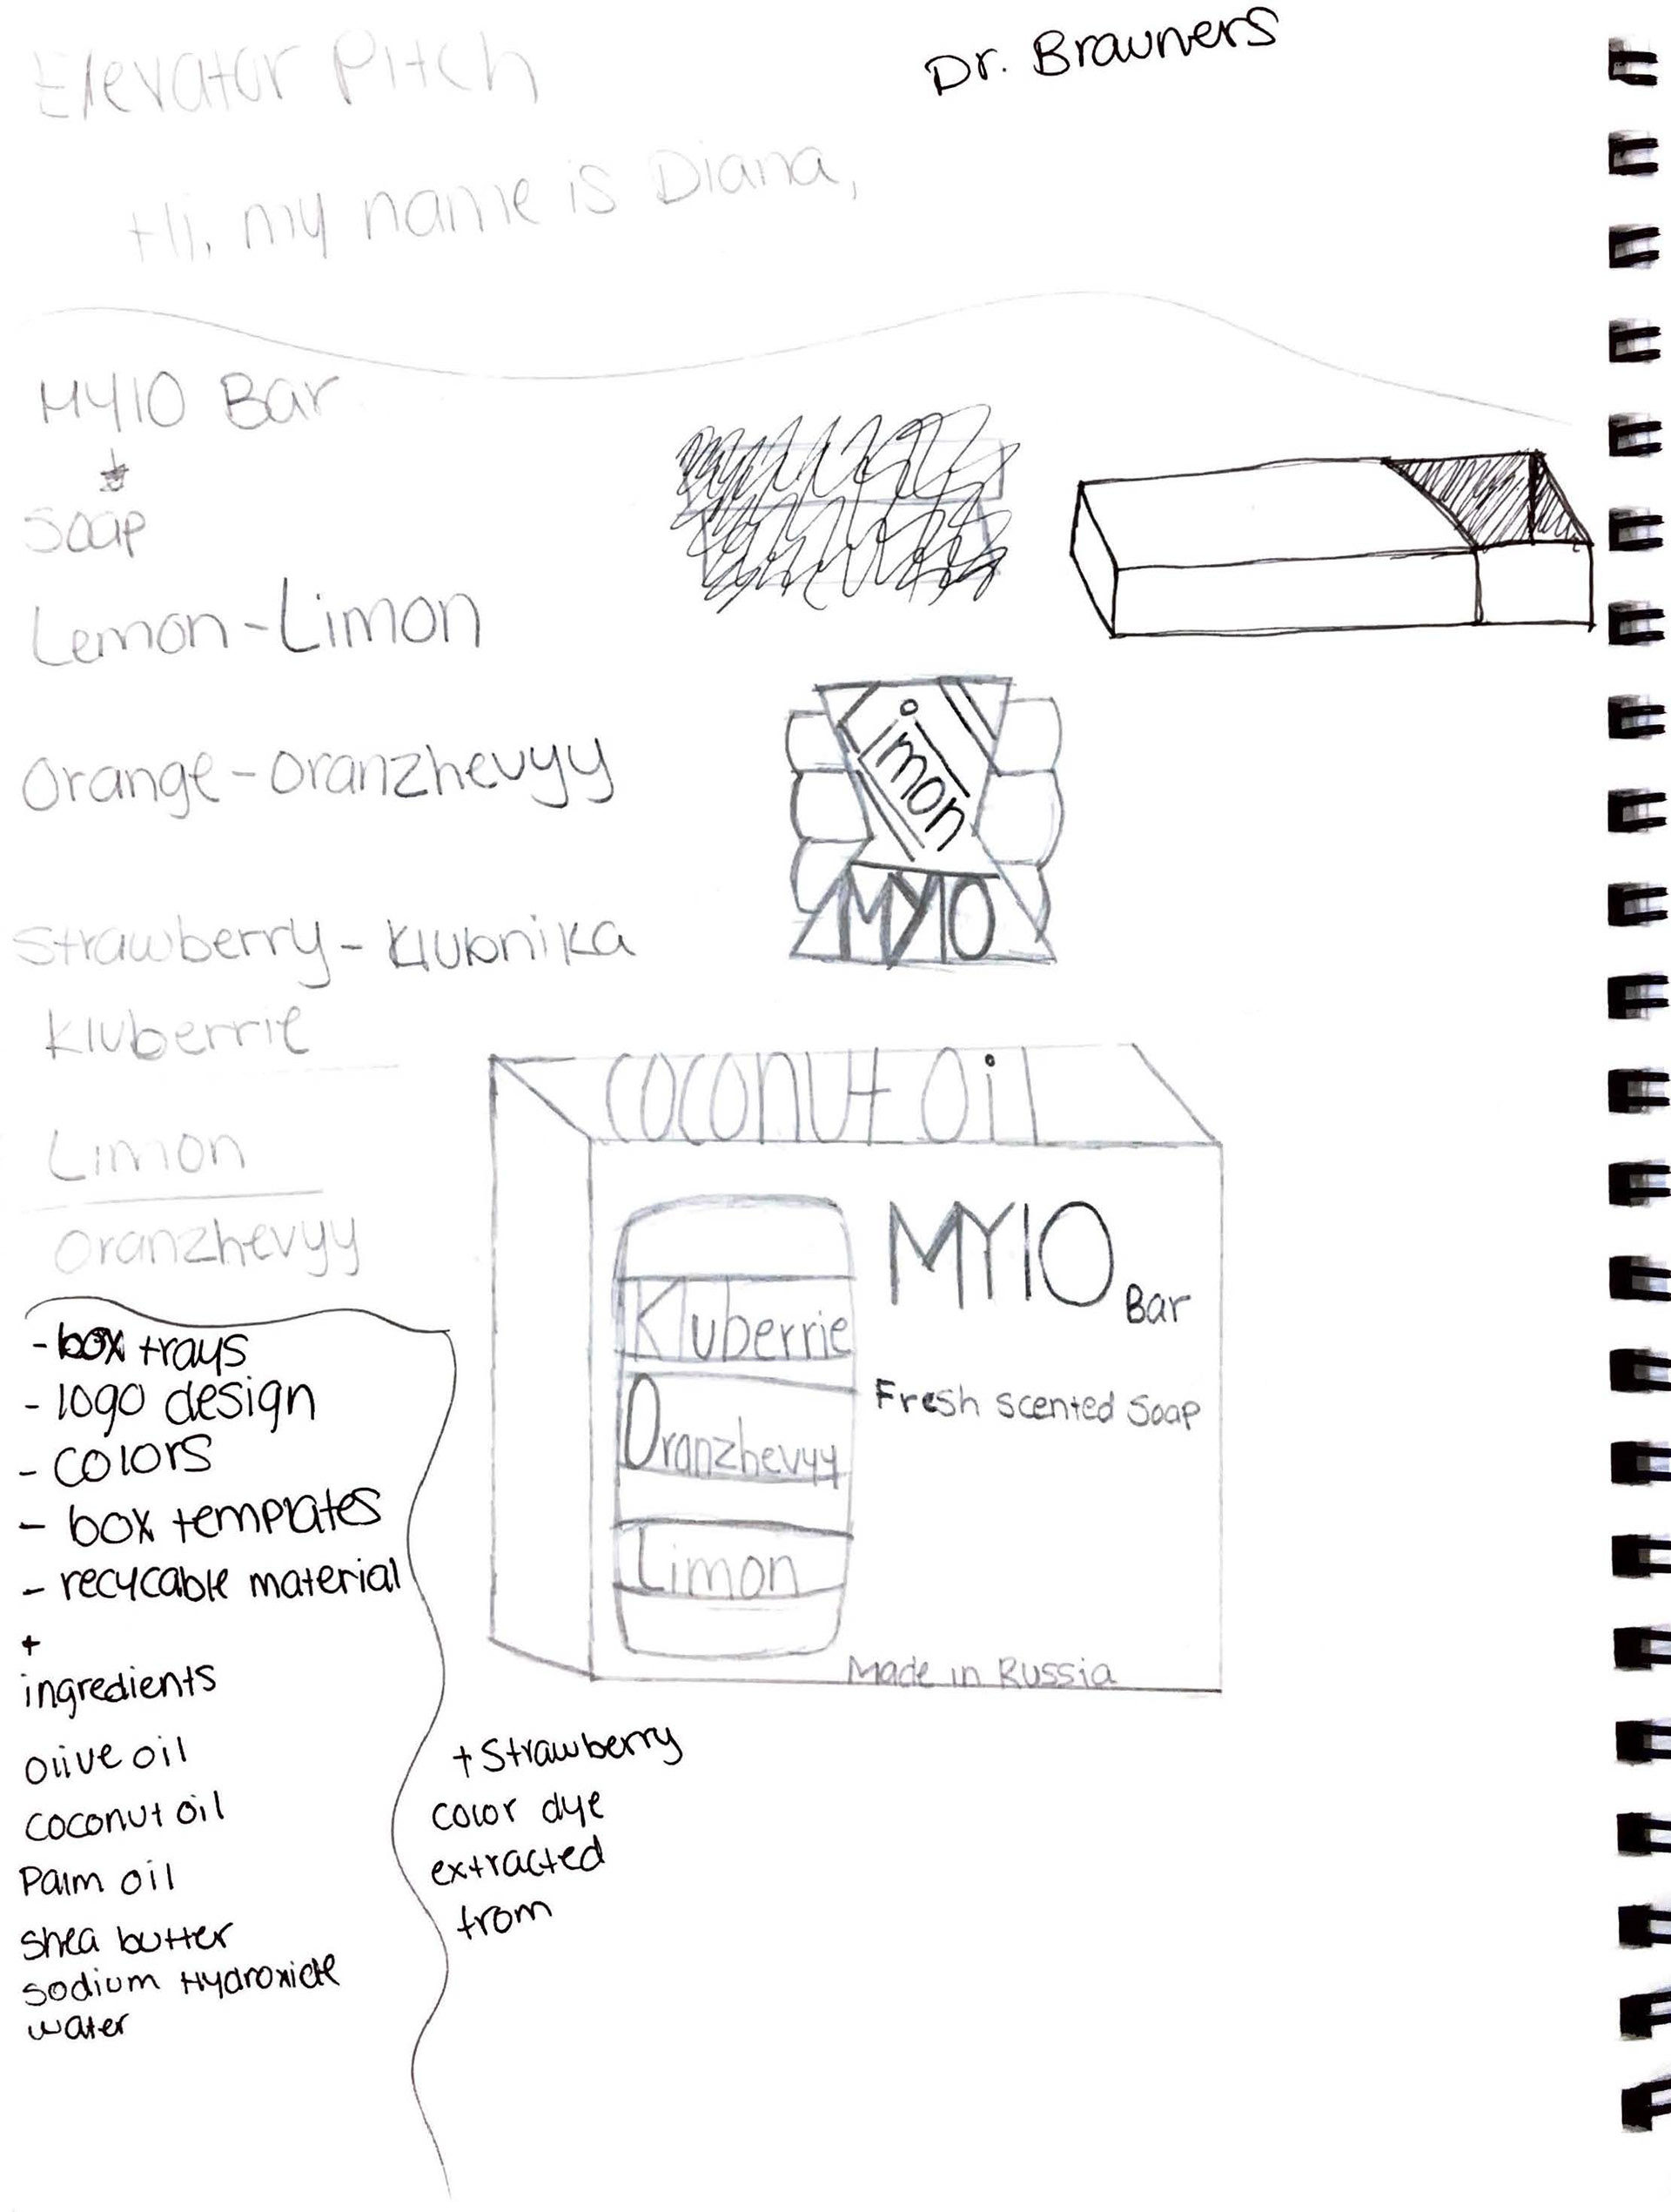 Elevator Pitch
Dr. Brauners
Hi, my name is Diana,
MYIO Bar
Soap
Lemon - Limon
Orange - oranzhevyy
Strawberry - Klubnika
Kluberrie
Limon
Oranzhevyy
- box trays
- logo design
- colors
- box templates
- recycable material
+
ingredients
olive oil
coconut oil
Palm oil
shea butter
sodium Hydroxide
water
Limon
MYIO
coconut oil
MYIO
Bar
Kluberrie
Fresh scented Soap
Oranzhevyy
Limon
Made in Russia
+ Strawberry
color dye
extracted
from